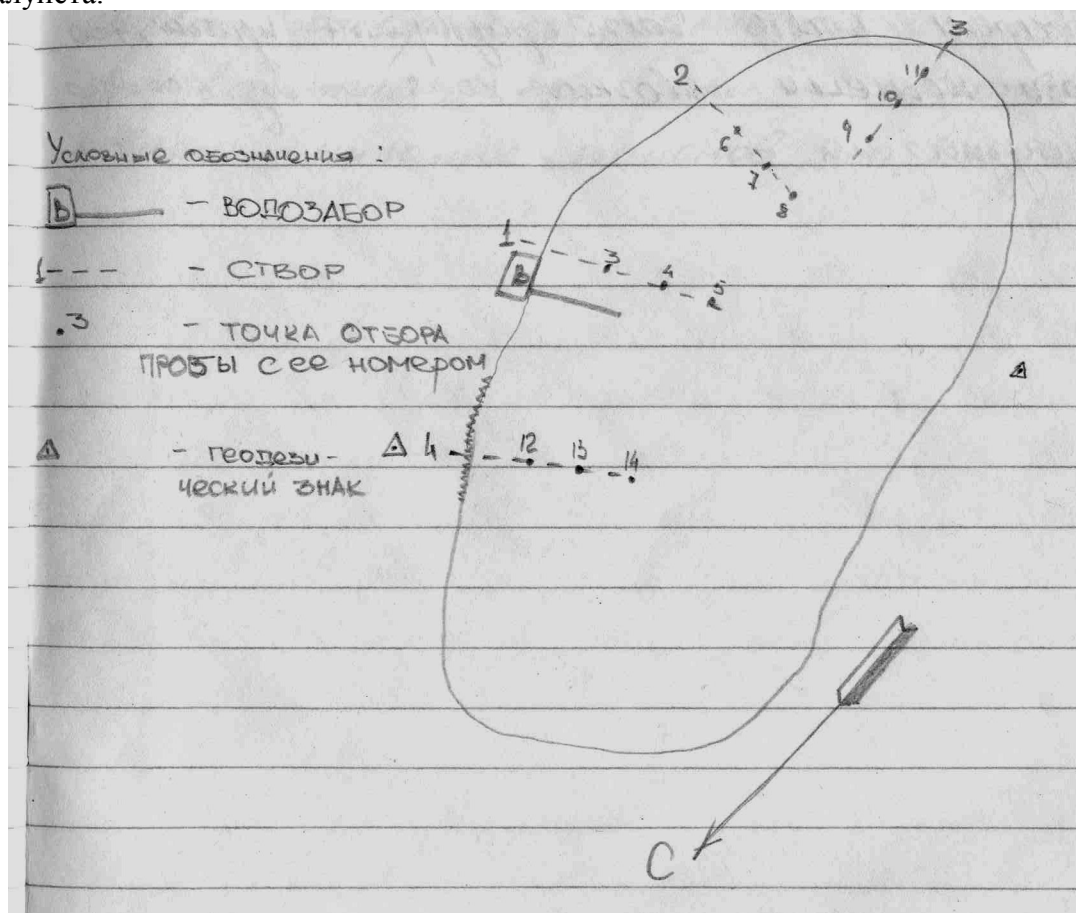 Условные обозначения :
В - ВОДОЗАБОР
1 - - - - СТВОР
.3 - ТОЧКА ОТБОРА
ПРОБЫ С ЕЕ НОМЕРОМ
- ГЕОДЕЗИ-
ЧЕСКИЙ ЗНАК
3
2
11
10
9
6
7
8
1
3
4
5
В
4
12
13
14
С